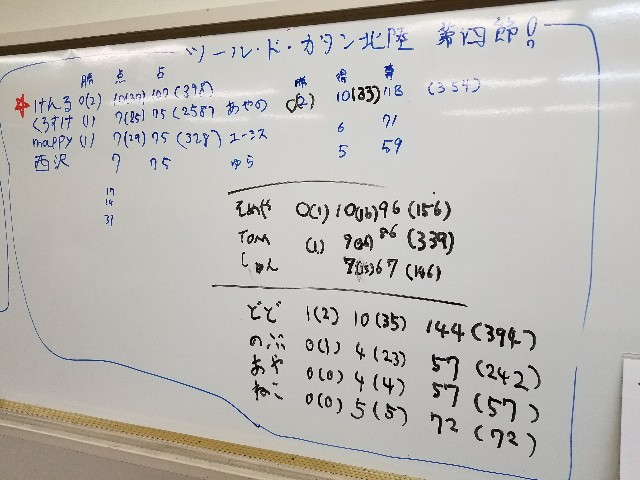 ツール・ド・カタン北陸 第四節!
勝 点 占
けんろ 0(2) 10(37) 107(398)
くろすけ (1) 7(25) 75(258)
mappy (1) 7(29) 75(328)
西沢 7 75
17
14
31
勝 得 算
あやの 10(33) 118 (354)
ユーミス 6 71
ゆら 5 59
0(1) 10(16) 96(156)
Tom (1) 86(339)
67(146)
どど 1(2) 10(35) 144(394)
のぶ 0(1) 4(23) 57(242)
あや 0(0) 4(4) 57(57)
ねこ 0(0) 5(5) 72(72)